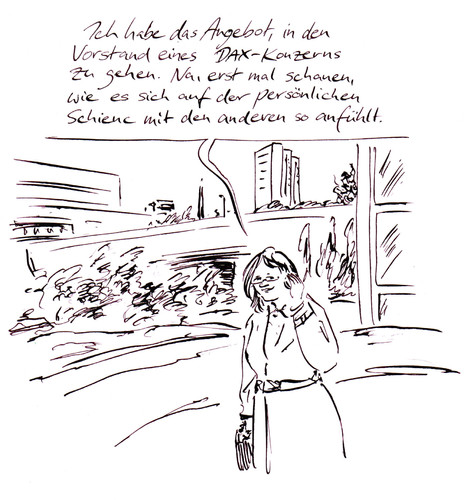 Ich habe das Angebot, in den
Vorstand eines DAX-Konzerns
zu gehen. Na, erst mal schauen,
wie es sich auf der persönlichen
Schiene mit den anderen so anfühlt.